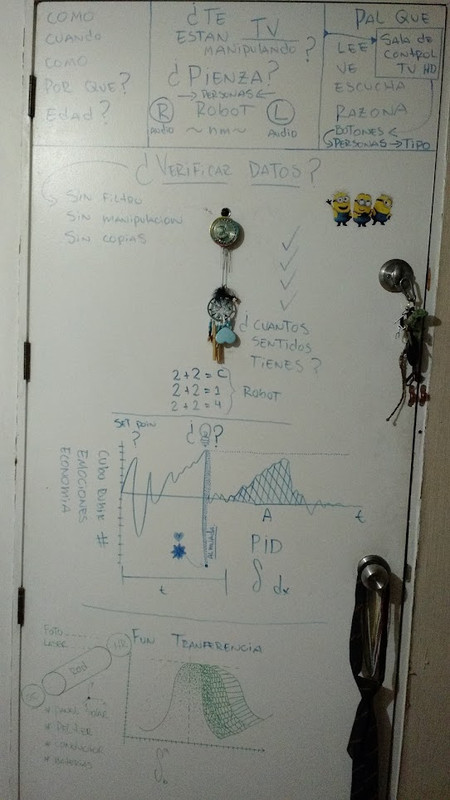 COMO
CUANDO
COMO
POR QUE?
Edad?
¿TE
ESTAN TV
MANIPULANDO?
¿PIENZA?
→ PERSONAS ←
R ROBOT L
AUDIO ~ nm ~ AUDIO
PAL QUE
LEE
VE
ESCUCHA
RAZONA
Sala de
CONTROL
TV HD
BOTONES
PERSONAS → TIPO
¿VERIFICAR DATOS?
Sin filtro
Sin manipulacion
Sin copias
¿CUANTOS
SENTIDOS
TIENES?
2+2=C
2+2=1
2+2=4
ROBOT
SET POIN
?
¿ ?
CUBO RUBIK #
EMOCIONES
ECONOMIA
A
t
PID
∫ dx
t
FUN TRANFERENCIA
FOTO